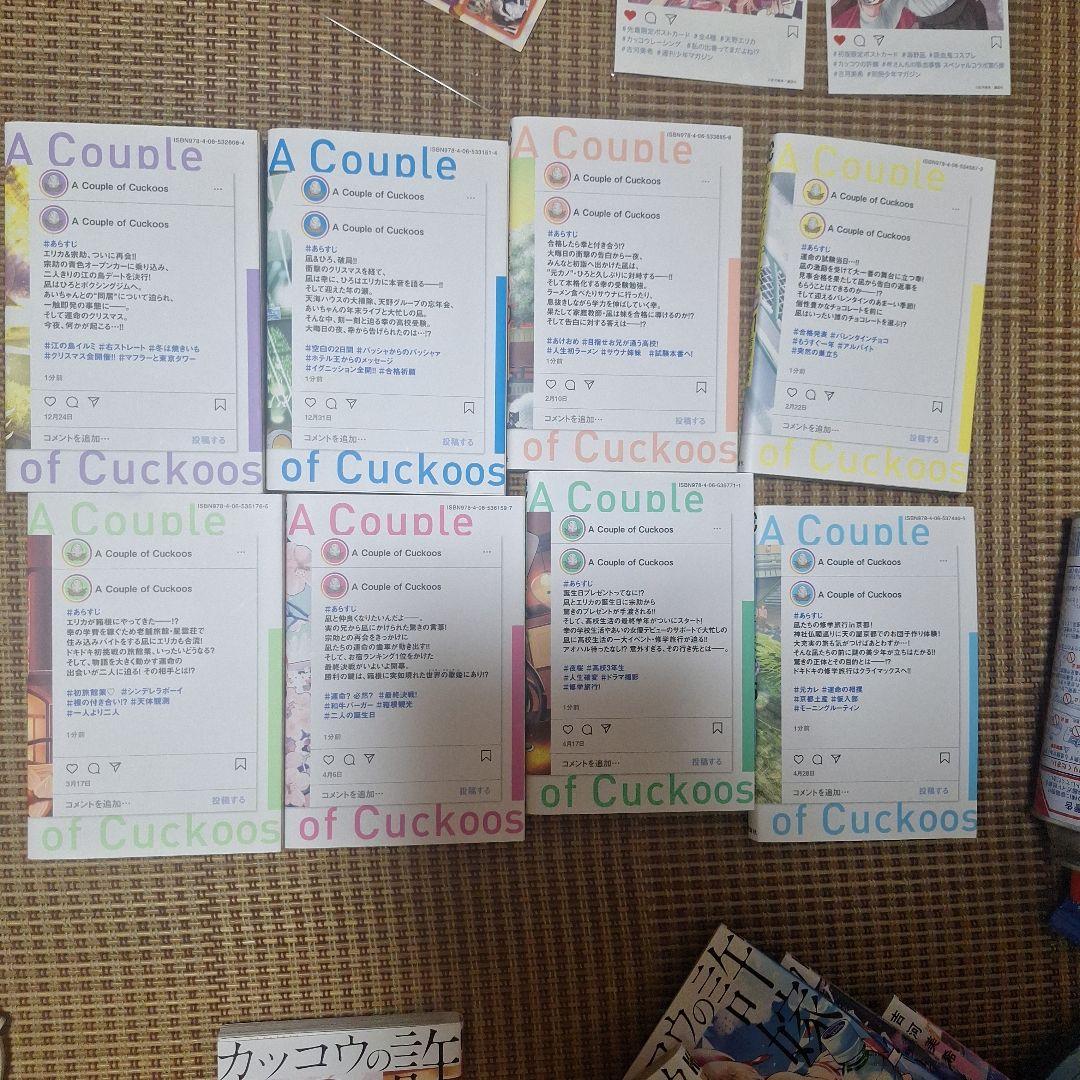 #先着限定ポストカード #全4種 #天野エリカ
#カッコウレーシング #私の出番ってまだよね!?
#吉河美希 #週刊少年マガジン
#初版限定ポストカード #海野凪 #吸血鬼コスプレ
#吉河美希 #別冊少年マガジン
A Couple
A Couple of Cuckoos
A Couple of Cuckoos
#あらすじ
エリカ&宗助、ついに再会!!
宗助の青色オープンカーに乗り込み、
二人きりの江の島デートを決行!
凪はひろとボクシングジムへ。
あいちゃんとの"同居"について迫られ、
一触即発の事態に――。
そして運命のクリスマス。
今夜、何かが起こる…!!
#江の島イルミ #右ストレート #冬は焼きいも
#クリスマス会開催!! #マフラーと東京タワー
1分前
12月24日
コメントを追加… 投稿する
of Cuckoos
ISBN978-4-06-533181-4
A Couple
A Couple of Cuckoos
A Couple of Cuckoos
#あらすじ
凪&ひろ、破局!!
衝撃のクリスマスを経て、
凪は幸に、ひろはエリカに本音を語る――!!
そして迎えた年の瀬。
天海ハウスの大掃除、天野グループの忘年会、
あいちゃんの年末ライブと大忙しの凪。
そんな中、刻一刻と迫る幸の高校受験。
大晦日の夜、幸から告げられたのは…!?
#空白の2日間 #バッシャからのバッシャァ
#ホテル王からのメッセージ
#イグニッション全開!! #合格祈願
1分前
12月31日
コメントを追加… 投稿する
of Cuckoos
A Couple
A Couple of Cuckoos
A Couple of Cuckoos
#あらすじ
合格したら幸と付き合う!?
大晦日の衝撃の告白から一夜、
みんなと初詣へ出かけた凪は、
"元カノ"・ひろと久しぶりに対峙する――!!
そして本格化する幸の受験勉強。
ラーメン食べたりサウナに行ったり、
息抜きしながら学力を伸ばしていく幸。
果たして家庭教師・凪は妹を合格に導けるのか!?
そして告白に対する答えは――!?
#あけおめ #目指せお兄が通う高校!
#人生初ラーメン #サウナ姉妹 #試験本番へ!
1分前
2月10日
コメントを追加… 投稿する
of Cuckoos
A Couple
A Couple of Cuckoos
A Couple of Cuckoos
#あらすじ
運命の試験当日…!!
凪の激励を受けて大一番の舞台に立つ幸!
見事合格を果たして凪から告白の返事を
もらうことはできるのか――!?
そして迎えるバレンタインのあまーい季節!
個性豊かなチョコレートを前に
凪はいったい誰のチョコレートを選ぶ!?
#合格発表 #バレンタインチョコ
#もうすぐ一年 #アルバイト
#突然の巣立ち
1分前
2月22日
コメントを追加… 投稿する
of Cuckoos
A Couple
A Couple of Cuckoos
A Couple of Cuckoos
#あらすじ
エリカが箱根にやってきた――!?
幸の学費を稼ぐため老舗旅館・星雲荘で
住み込みバイトをする凪にエリカも合流!
ドキドキ初挑戦の旅館業、いったいどうなる?
そして、物語を大きく動かす運命の
出会いが二人に迫る! その相手とは!?
#初旅館業♡ #シンデレラボーイ
#裸の付き合い!? #天体観測
#一人より二人
1分前
3月17日
コメントを追加… 投稿する
of Cuckoos
ISBN978-4-06-536159-7
A Couple
A Couple of Cuckoos
A Couple of Cuckoos
#あらすじ
凪と仲良くなりたいんだよ――。
実の兄から凪にかけられた驚きの言葉!
宗助との再会をきっかけに
凪たちの運命の歯車が動き出す!!
そして、お宿ランキング1位をかけた
最終決戦がいよいよ開幕。
勝利の鍵は、箱根に突如現れた世界の歌姫にあり!?
#運命? 必然? #最終決戦!
#和牛バーガー #箱根観光
#二人の誕生日
1分前
4月6日
コメントを追加… 投稿する
of Cuckoos
A Couple
A Couple of Cuckoos
A Couple of Cuckoos
#あらすじ
誕生日プレゼントってなに!?
凪とエリカの誕生日に宗助から
驚きのプレゼントが手渡される!!
そして、高校生活の最終学年がついにスタート!
幸の学校生活やあいの女優デビューのサポートで大忙しの
凪に高校生活の一大イベント・修学旅行が迫る!!
アオハル待ったなし!? 意外すぎる、その行き先とは――。
#夜桜 #高校3年生
#人生確変 #ドラマ撮影
#修学旅行!
1分前
4月17日
コメントを追加… 投稿する
of Cuckoos
A Couple
A Couple of Cuckoos
A Couple of Cuckoos
#あらすじ
凪たちの修学旅行in京都!
神社仏閣巡りに天の望京都でのお団子作り体験!
大充実の旅も気がつけばあとわずか…!
そんな凪たちの前に謎の美少年が立ちはだかる!!
驚きの正体とその目的とは――!?
ドキドキの修学旅行はクライマックスへ!!
#元カレ #運命の相撲
#京都土産 #仮入部
#モーニングルーティン
1分前
4月28日
コメントを追加… 投稿する
of Cuckoos
カッコウの許
ウの許嫁
吉河美希